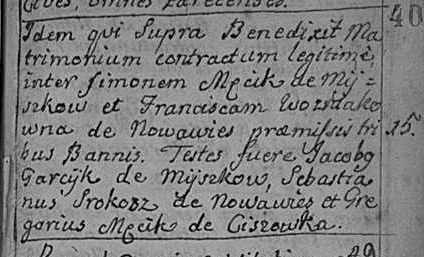 Cives, omnes Zarecenses.
40
Idem qui Supra Benedixit Ma
trimonium contractum legitimè,
inter Simonem Męcik de Mÿ=
szkow et Franciscam Wozniako
wna de Nowawies præmissis tri
15.
bus Bannis. Testes fuere Jacobg
Garcÿk de Mÿszkow, Sebastia
nus Srokosz de Nowawies et Gre
gorius Męcik de Ciszowka.
29